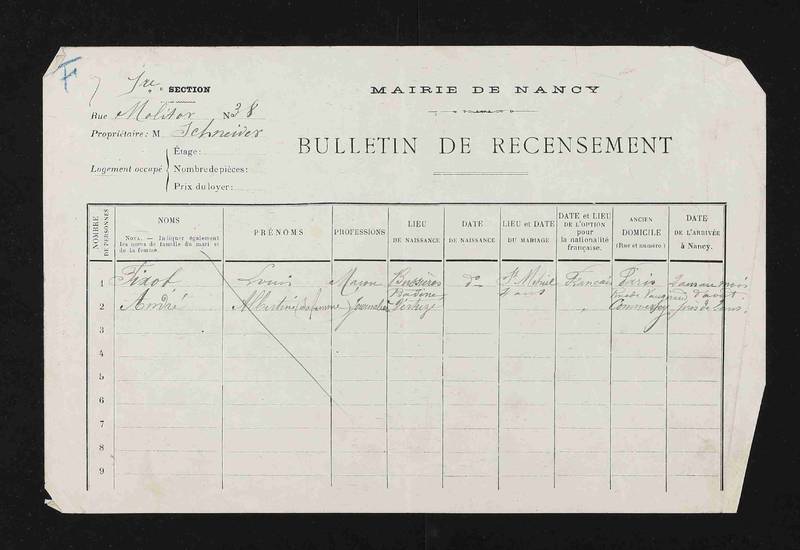 F
1re SECTION
MAIRIE DE NANCY
Rue Molitor N° 38
Propriétaire : M Schneider
BULLETIN DE RECENSEMENT
Logement occupé
Étage :
Nombre de pièces :
Prix du loyer :
NOMBRE DE PERSONNES
NOMS
NOTA. — Indiquer également les noms de famille du mari et de la femme.
PRÉNOMS
PROFESSIONS
LIEU DE NAISSANCE
DATE DE NAISSANCE
LIEU et DATE DU MARIAGE
DATE et LIEU DE L'OPTION pour la nationalité française.
ANCIEN DOMICILE (Rue et numéro)
DATE DE L'ARRIVÉE à Nancy.
1 Fixot Louis Maçon Bussières do St Mihiel Français Paris 2 ans au mois
Badine 2 ans Rue de d'août
2 André Albertine sa femme Journalière Commercy près de
3
4
5
6
7
8
9